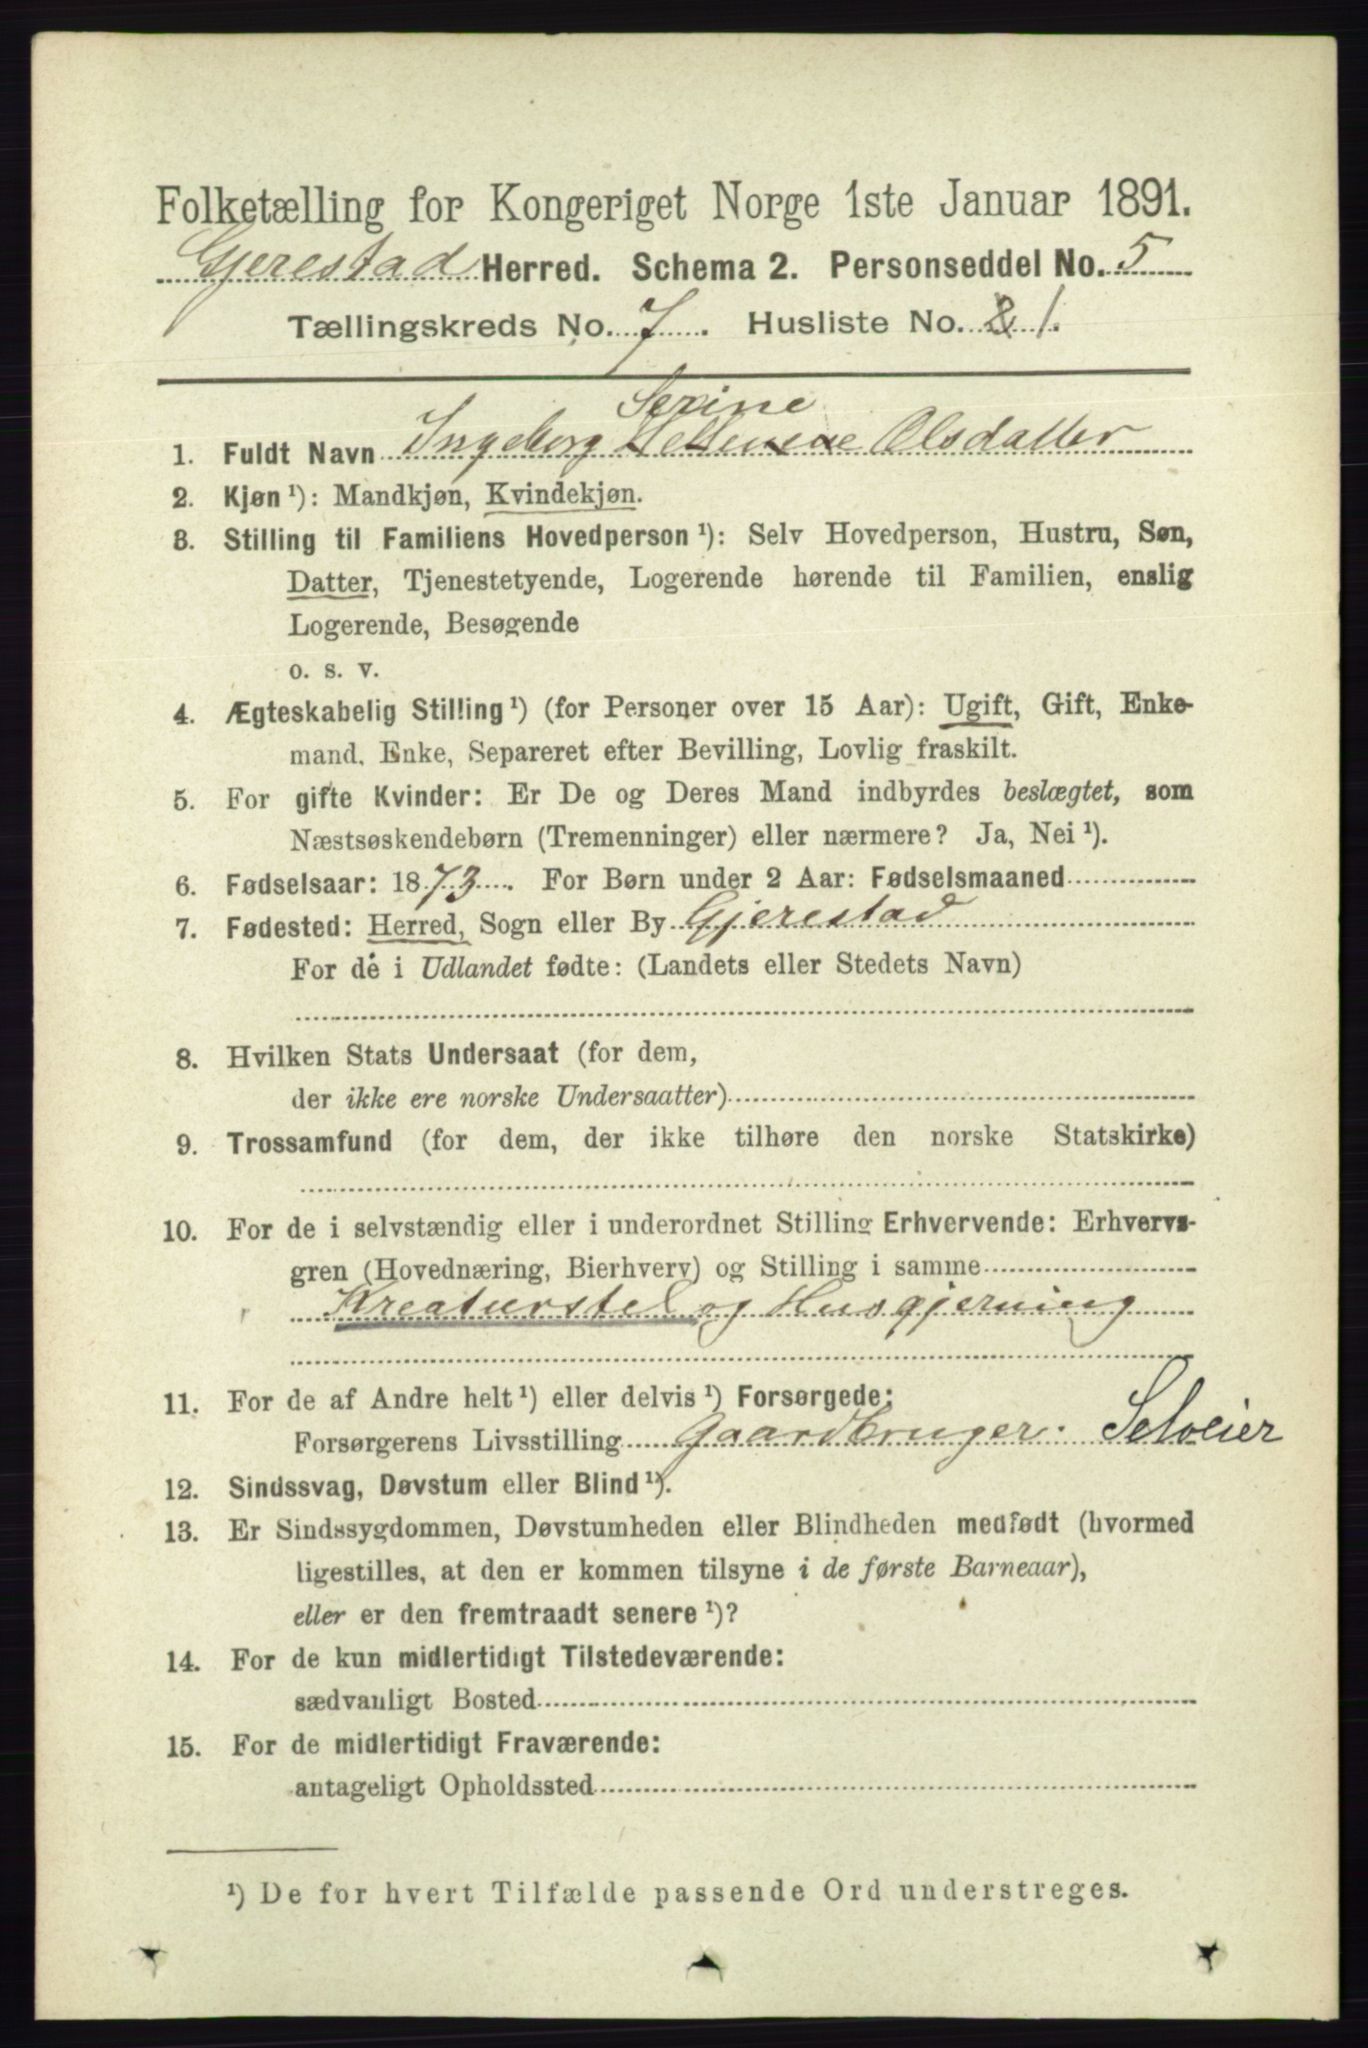 Folketælling for Kongeriget Norge 1ste Januar 1891.
Gjerestad Herred. Schema 2. Personseddel No. 5
Tællingskreds No. 7. Husliste No. 2 1.
Serine
1. Fuldt Navn Ingeborg Olsdatter
2. Kjøn ¹): Mandkjøn, Kvindekjøn.
3. Stilling til Familiens Hovedperson ¹): Selv Hovedperson, Hustru, Søn,
Datter, Tjenestetyende, Logerende hørende til Familien, enslig
Logerende, Besøgende
o. s. v.
4. Ægteskabelig Stilling ¹) (for Personer over 15 Aar): Ugift, Gift, Enke-
mand, Enke, Separeret efter Bevilling, Lovlig fraskilt.
5. For gifte Kvinder: Er De og Deres Mand indbyrdes beslægtet, som
Næstsøskendebørn (Tremenninger) eller nærmere? Ja, Nei ¹).
6. Fødselsaar: 1873. For Børn under 2 Aar: Fødselsmaaned
7. Fødested: Herred, Sogn eller By Gjerestad
For de i Udlandet fødte: (Landets eller Stedets Navn)
8. Hvilken Stats Undersaat (for dem,
der ikke ere norske Undersaatter)
9. Trossamfund (for dem, der ikke tilhøre den norske Statskirke)
10. For de i selvstændig eller i underordnet Stilling Erhvervende: Erhvervs-
gren (Hovednæring, Bierhverv) og Stilling i samme
Kreaturstel og Husgjerning
11. For de af Andre helt ¹) eller delvis ¹) Forsørgede:
Forsørgerens Livsstilling Gaardbruger. Selveier
12. Sindssvag, Døvstum eller Blind ¹).
13. Er Sindssygdommen, Døvstumheden eller Blindheden medfødt (hvormed
ligestilles, at den er kommen tilsyne i de første Barneaar),
eller er den fremtraadt senere ¹)?
14. For de kun midlertidigt Tilstedeværende:
sædvanligt Bosted
15. For de midlertidigt Fraværende:
antageligt Opholdssted
¹) De for hvert Tilfælde passende Ord understreges.